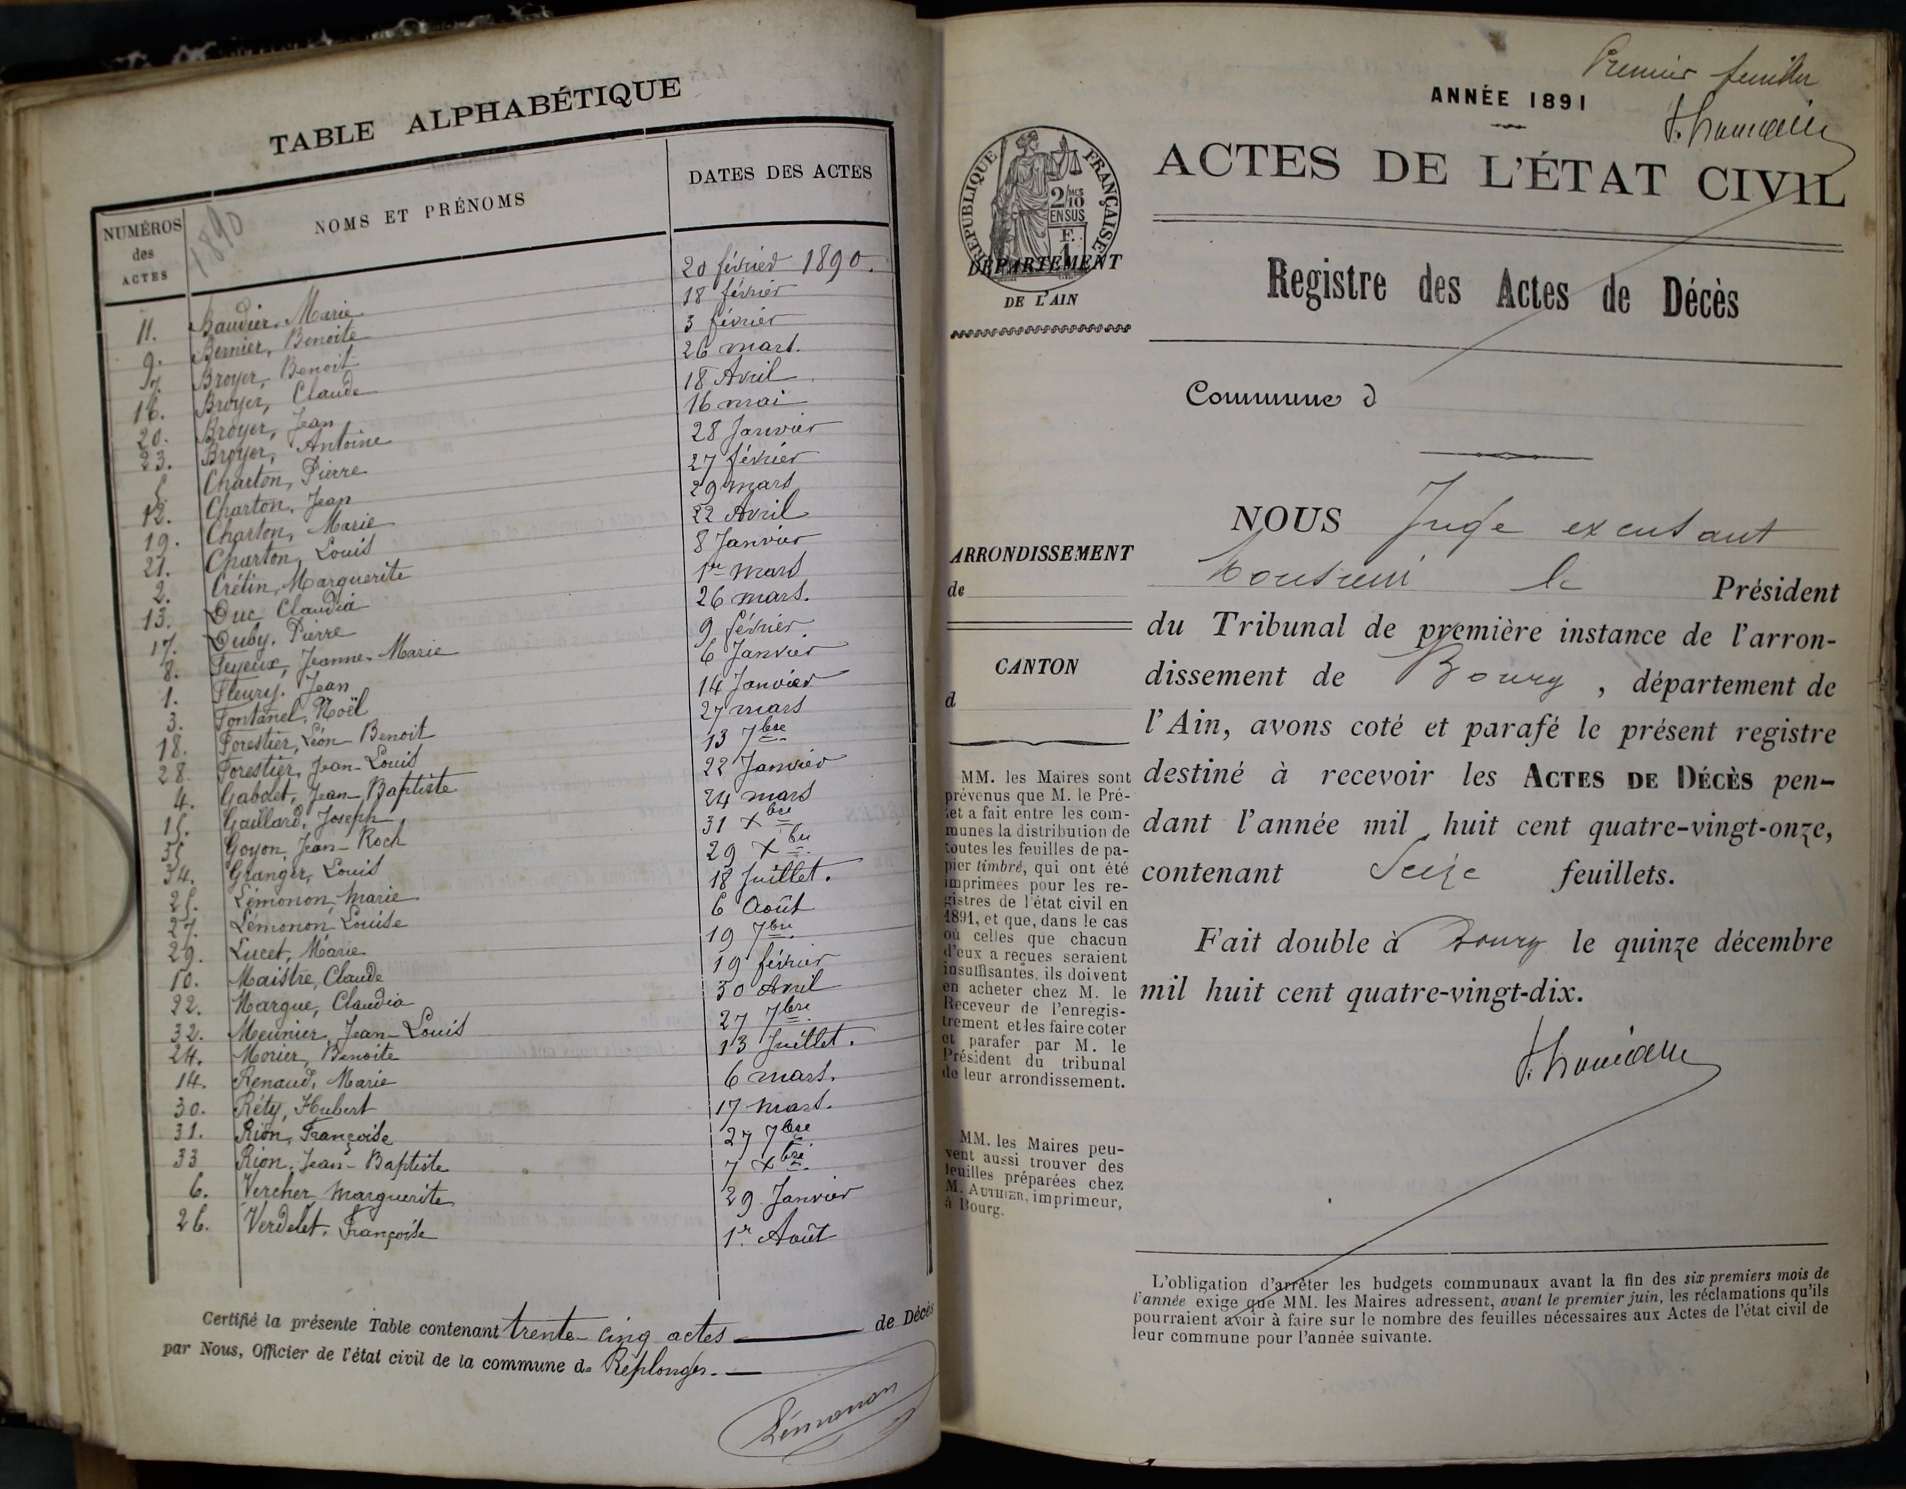 TABLE ALPHABÉTIQUE
NUMÉROS des ACTES
1890
NOMS ET PRÉNOMS
DATES DES ACTES
11. Baudier, Marie 20 février 1890.
9. Bernier, Benoite 18 février
7. Broyer, Benoit 3 février
16. Broyer, Claude 26 mars.
20. Broyer, Jean 18 Avril
23. Broyer, Antoine 16 mai
5. Charton, Pierre 28 Janvier
12. Charton, Jean 27 février
19. Charton, Marie 29 mars
21. Charton, Louis 22 Avril
2. Crétin, Marguerite 8 Janvier
13. Duc, Claudia 1er mars
17. Duby, Pierre 26 mars.
8. Feyeux, Jeanne-Marie 9 février
1. Fleury, Jean 6 Janvier
3. Fontanel, Noël 14 Janvier
18. Forestier, Léon Benoit 27 mars
28. Forestier, Jean-Louis 13 7bre
4. Gabdet, Jean-Baptiste 22 Janvier
15. Gaillard, Joseph 24 mars
35 Goyon, Jean-Roch 31 Xbre
34. Granger, Louis 29 Xbre
25. Lémonon, Marie 18 Juillet.
27. Lémonon, Louise 6 Août
29. Lucet, Marie 19 7bre
10. Maistre, Claude 19 février
22. Margue, Claudia 30 Avril
32. Meunier, Jean-Louis 27 7bre
24. Morier, Benoite 13 Juillet.
14. Renaud, Marie 6 mars.
30. Réty, Hubert 17 mars.
31. Rion, Françoise 27 7bre
33 Rion, Jean-Baptiste 7 Xbre
6. Vercher, Marguerite 29 Janvier
26. Verdelet, Françoise 1er Août
Certifié la présente Table contenant trente-cinq actes de Décès
par Nous, Officier de l'état civil de la commune de Replonges.
Lémonon
Premier feuillet
ANNÉE 1891
ACTES DE L'ÉTAT CIVIL
RÉPUBLIQUE FRANÇAISE
2/10mes
EN SUS
F.
1
DÉPARTEMENT
DE L'AIN
Registre des Actes de Décès
Commune d
ARRONDISSEMENT
de
CANTON
d
MM. les Maires sont
prévenus que M. le Pré-
fet a fait entre les com-
munes la distribution de
toutes les feuilles de pa-
pier timbré, qui ont été
imprimées pour les re-
gistres de l'état civil en
1891, et que, dans le cas
où celles que chacun
d'eux a reçues seraient
insuffisantes, ils doivent
en acheter chez M. le
Receveur de l'enregis-
trement et les faire coter
et parafer par M. le
Président du tribunal
de leur arrondissement.
MM. les Maires peu-
vent aussi trouver des
feuilles préparées chez
M. AUTHIER, imprimeur,
à Bourg.
NOUS Juge excusant
Monsieur le Président
du Tribunal de première instance de l'arron-
dissement de Bourg, département de
l'Ain, avons coté et parafé le présent registre
destiné à recevoir les ACTES DE DÉCÈS pen-
dant l'année mil huit cent quatre-vingt-onze,
contenant Seize feuillets.
Fait double à Bourg le quinze décembre
mil huit cent quatre-vingt-dix.
L'obligation d'arrêter les budgets communaux avant la fin des six premiers mois de
l'année exige que MM. les Maires adressent, avant le premier juin, les réclamations qu'ils
pourraient avoir à faire sur le nombre des feuilles nécessaires aux Actes de l'état civil de
leur commune pour l'année suivante.